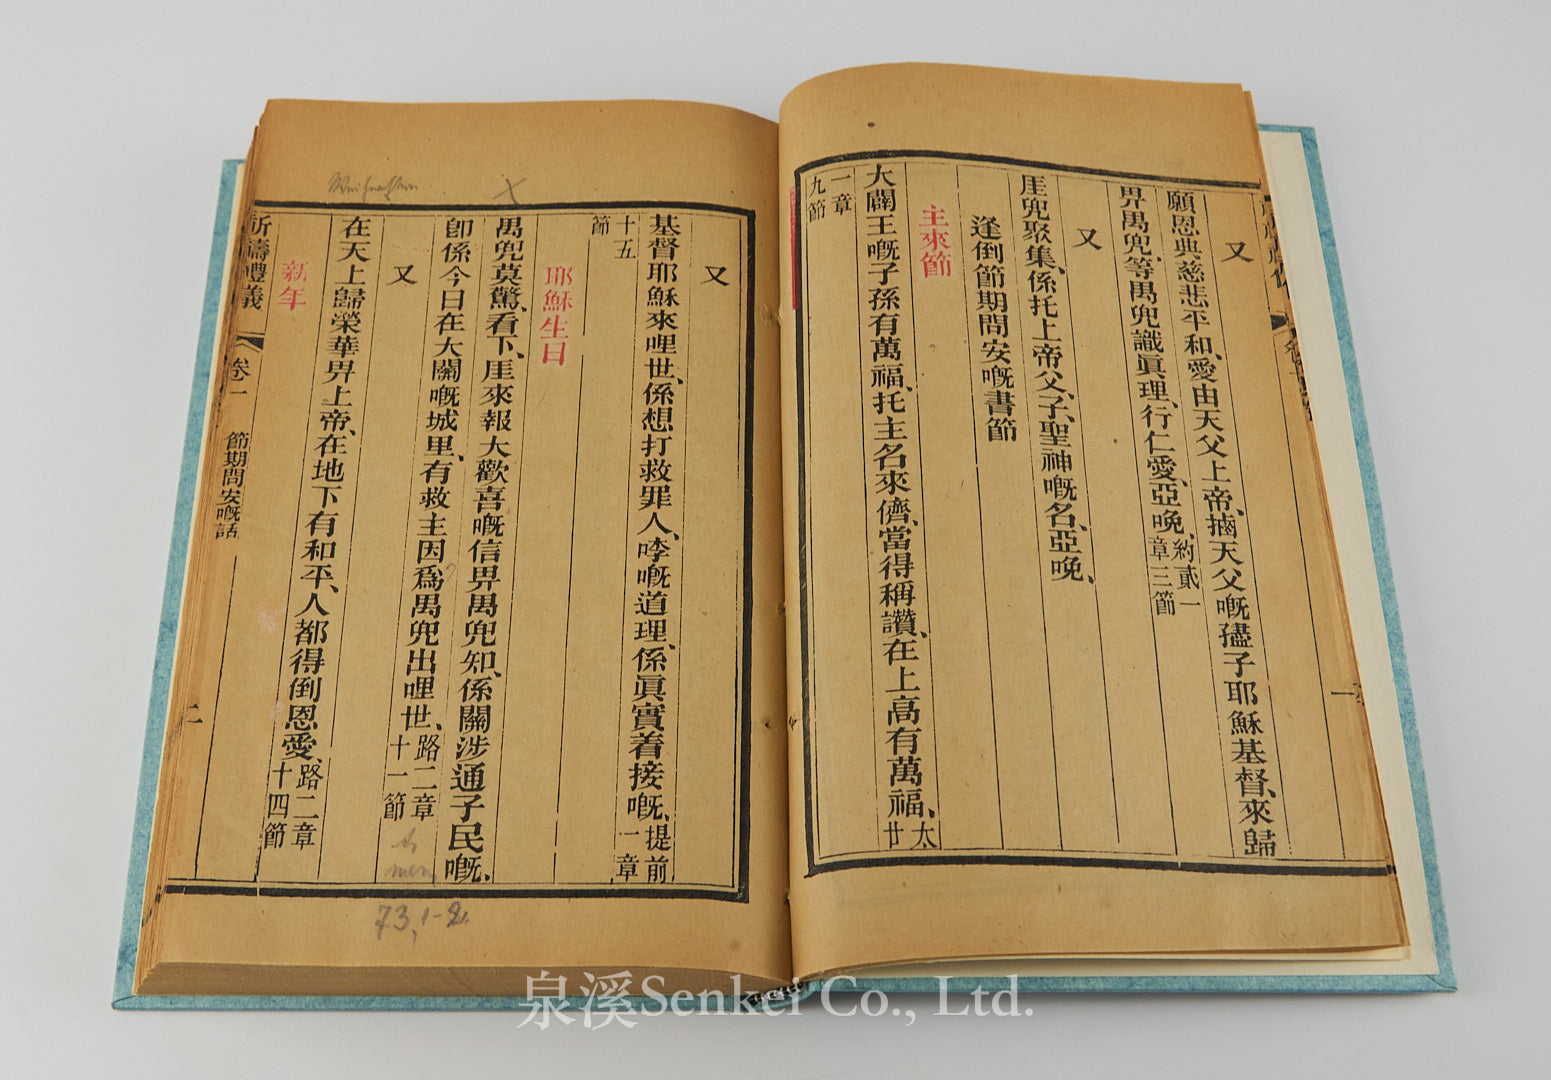 又
願恩典慈悲平和、愛由天父上帝、摛天父嘅𥤘子耶穌基督、來歸
畀禺兜、等禺兜識眞理、行仁愛、亞晚、約貳一章三節
又
厓兜聚集、係托上帝父、子、聖神嘅名、亞晚、
逢倒節期問安嘅書節
主來節
大闢王嘅子孫有萬福、托主名來儕、當得稱讚、在上高有萬福、太廿
一章九節
又
基督耶穌來哩世、係想打救罪人、㖿嘅道理、係眞實着接嘅、提前一章
十五節
耶穌生日
禺兜莫驚、看下、厓來報大歡喜嘅信畀禺兜知、係關涉通子民嘅、
卽係今日在大闢嘅城里、有救主因爲禺兜出哩世、路二章十一節
又
在天上歸榮華畀上帝、在地下有和平、人都得倒恩愛、路二章十四節
新年
祈禱禮義 卷一 節期問安嘅話 二
Weihnachten
X
A
men
73, 1-2.
泉溪Senkei Co., Ltd.